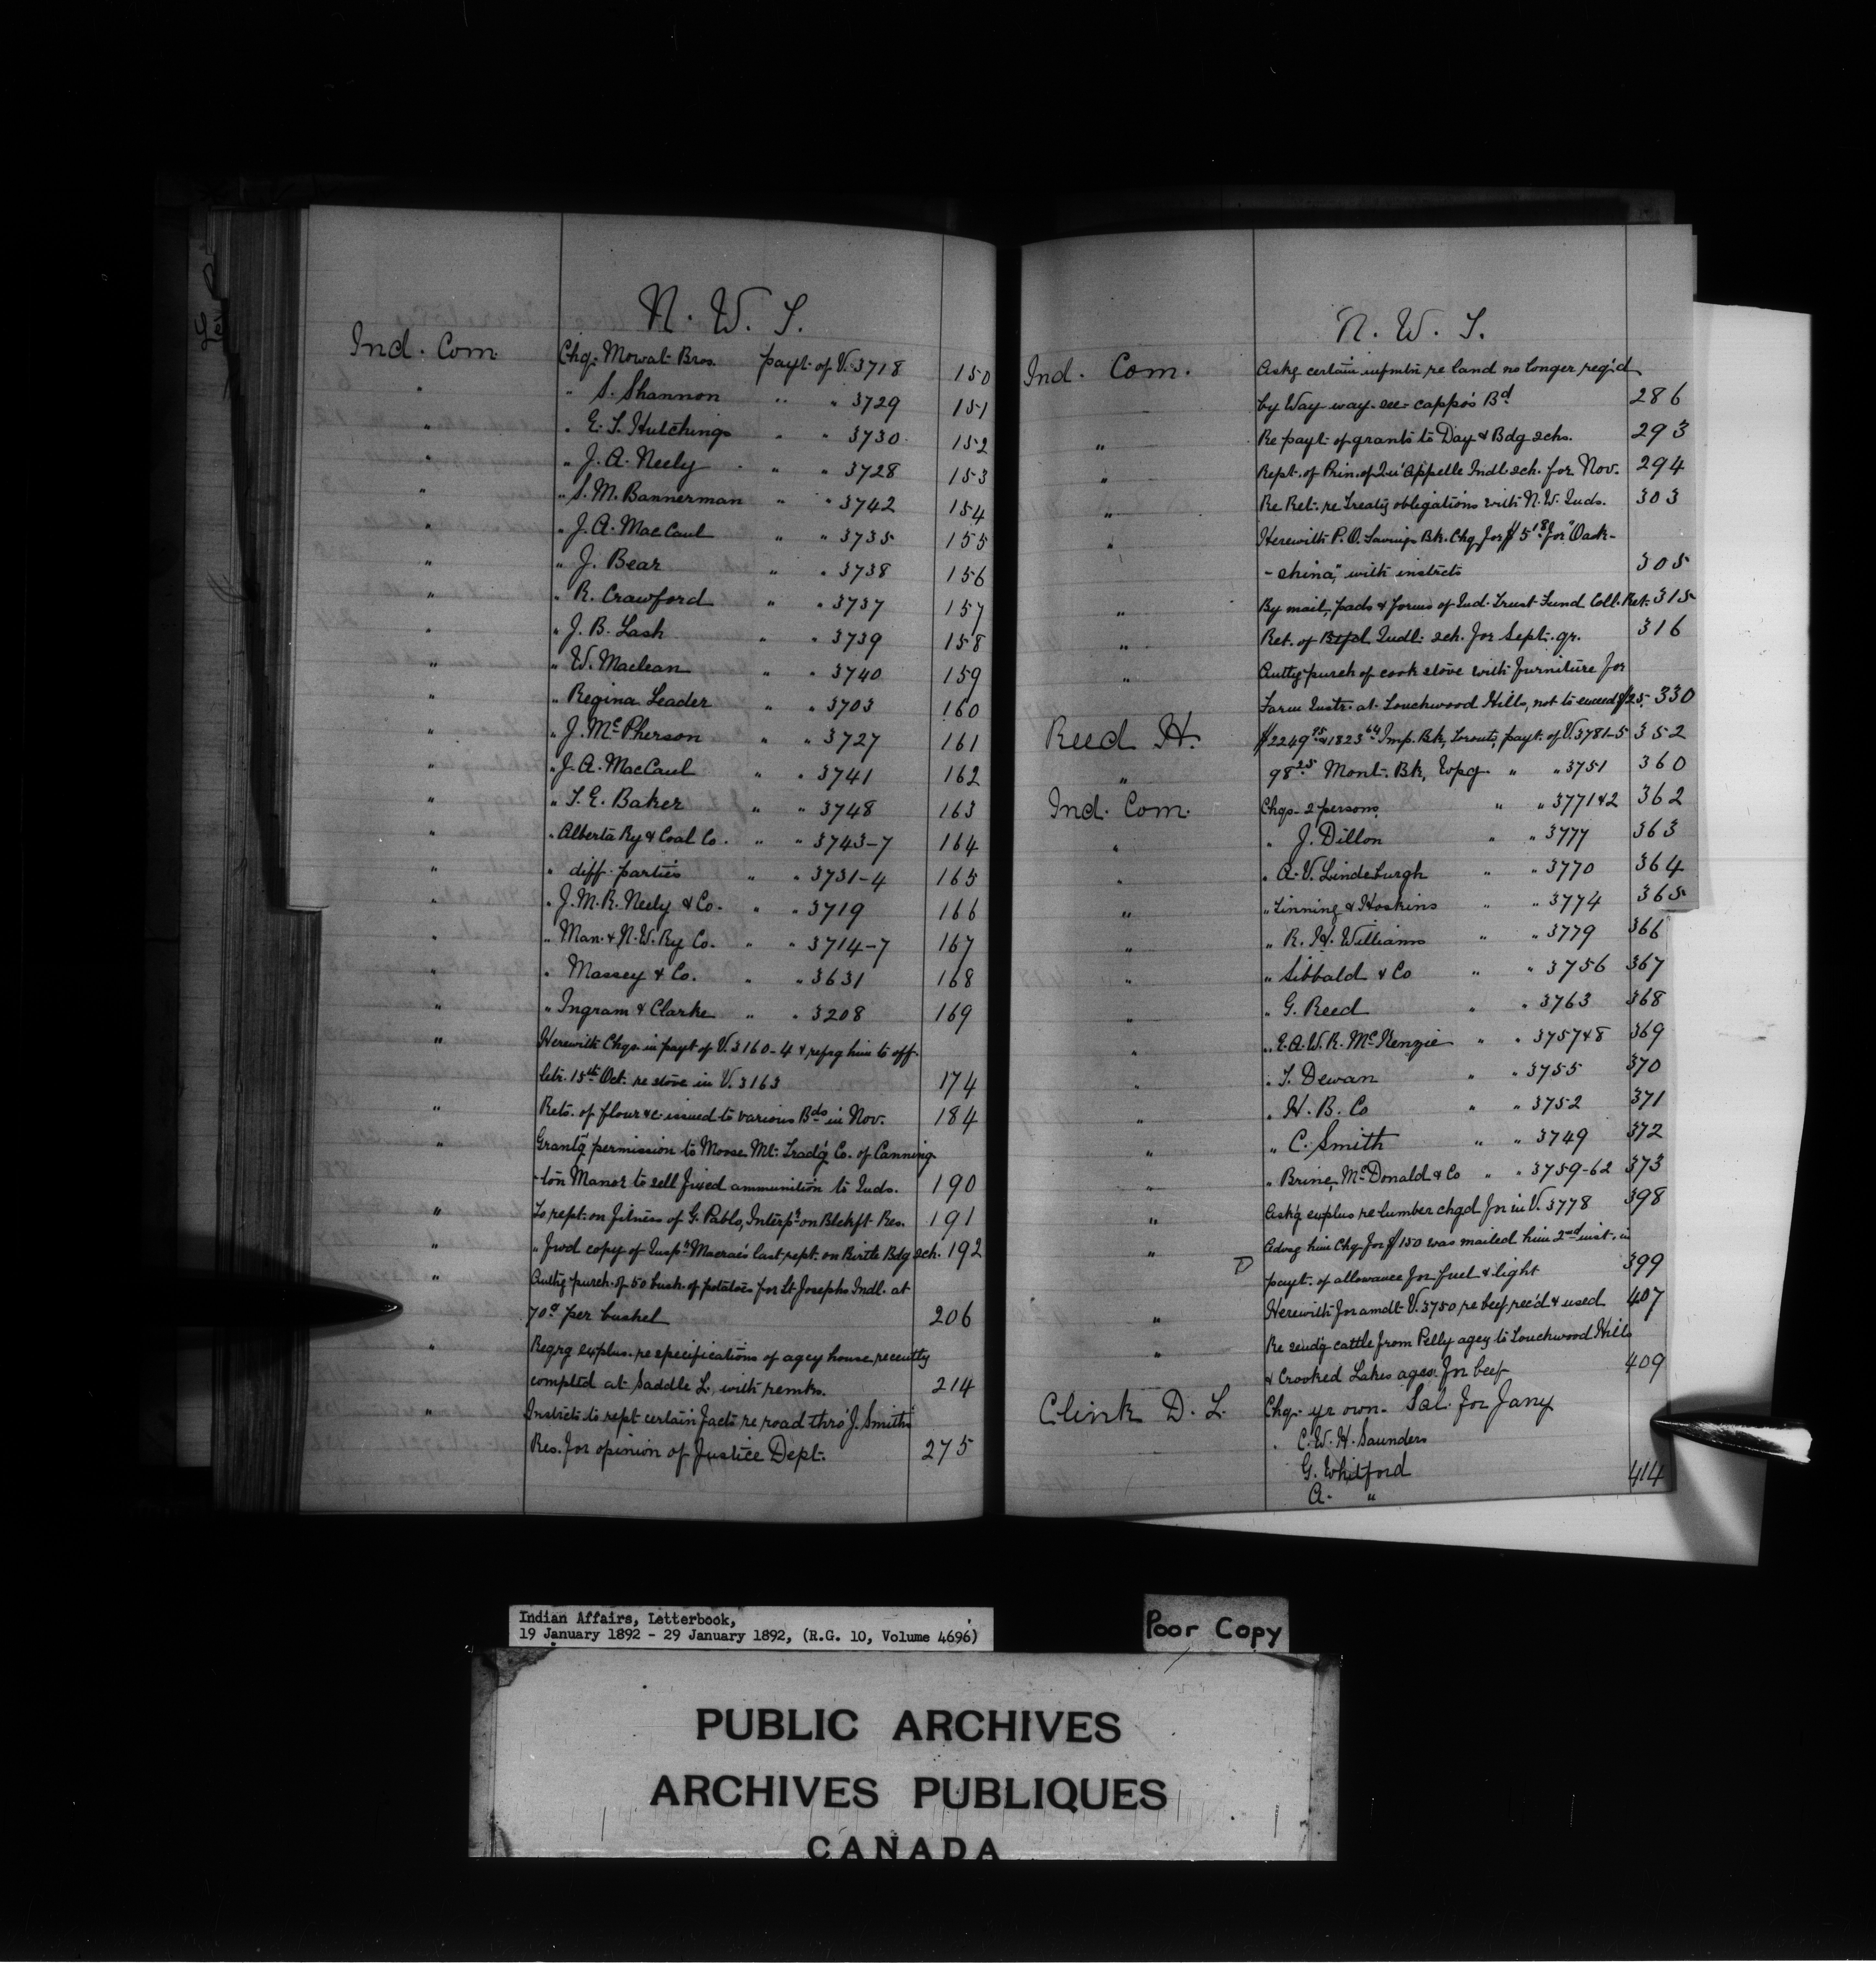 N. W. T.
Ind. Com. Chq. Mowat Bros. payt. of V. 3718 150
" " S. Shannon " " 3729 151
" " E. F. Hutchings " " 3730 152
" " J. A. Neely " " 3728 153
" " S. M. Bannerman " " 3742 154
" " J. A. MacCaul " " 3735 155
" " J. Bear " " 3738 156
" " R. Crawford " " 3737 157
" " J. B. Lash " " 3739 158
" " W. Maclean " " 3740 159
" " Regina Leader " " 3703 160
" " J. McPherson " " 3727 161
" " J. A. MacCaul " " 3741 162
" " I. G. Baker " " 3748 163
" " Alberta Ry & Coal Co. " " 3743-7 164
" " diff. parties " " 3731-4 165
" " J. M. R. Neely & Co. " " 3719 166
" " Man. & N. W. Ry Co. " " 3714-7 167
" " Massey & Co. " " 3631 168
" " Ingram & Clarke " " 3208 169
" Herewith Chqs. in payt of V. 3160-4 & refrg him to off.
letr. 15th Oct. re stove in V. 3163 174
" Rets. of flour &c. issued to various Bds in Nov. 184
" Grantg permission to Moose Mt. Tradg Co. of Canning-
-ton Manor to sell fixed ammunition to Inds. 190
" To rept. on fitness of G. Pablo, Interpr on Blckft Res. 191
" " fwd copy of Inspr Macrae's last rept. on Birtle Bdg sch. 192
" Authg purch. of 50 bush. of potatoes for St Josephs Indl. at
70¢ per bushel 206
" Reqrg explns. re specifications of agcy house recently
compltd at Saddle L. with remks. 214
" Instrcts to rept certain facts re road thro' J. Smith's
Res. for opinion of Justice Dept. 275
N. W. T.
Ind. Com. Askg certain infmtn re land no longer reqd
by Way-way-see-cappo's Bd 286
" Re payt. of grants to Day & Bdg schs. 293
" Rept. of Prin. of Qu'Appelle Indl. sch. for Nov. 294
" Re Ret. re Treaty obligations with N. W. Inds. 303
" Herewith P. O. Savings Bk. Chq for $5.18 for "Oask-
-china", with instrcts 305
" By mail, pads & forms of Ind. Trust Fund Coll. Ret. 315
" Ret. of Indl. sch. for Sept. qr. 316
" Authg purch of cook stove with furniture for
Farm Instr. at Touchwood Hills, not to exceed $25. 330
Reed H. $2249.95 & 1823.64 Imp. Bk, Toronto, payt. of V. 3781-5 352
" 98.25 Mont. Bk, Wpg. " " 3751 360
Ind. Com. Chqs. 2 persons " " 3771&2 362
" " J. Dillon " " 3777 363
" " A. V. Lindeburgh " " 3770 364
" " Tinning & Hoskins " " 3774 365
" " R. H. Williams " " 3779 366
" " Sibbald & Co " " 3756 367
" " G. Reed " " 3763 368
" " E. A. W. R. McKenzie " " 3757&8 369
" " T. Dewan " " 3755 370
" " H. B. Co " " 3752 371
" " C. Smith " " 3749 372
" " Brine, McDonald & Co " " 3759-62 373
" Askg explns re lumber chgd for in V. 3778 398
" Advsg him Chq. for $150 was mailed him 2nd inst. in
payt. of allowance for fuel & light 399
" Herewith for amdt V. 3750 re beef rec'd & used 407
" Re sendg cattle from Pelly agcy to Touchwood Hills
& Crooked Lakes agcs. for beef 409
Clink D. L. Chq. yr own. Sal. for Jany
" C. W. H. Saunders
G. Whitford 414
A. "
Indian Affairs, Letterbook,
19 January 1892 - 29 January 1892, (R.G. 10, Volume 4696)
Poor Copy
PUBLIC ARCHIVES
ARCHIVES PUBLIQUES
CANADA